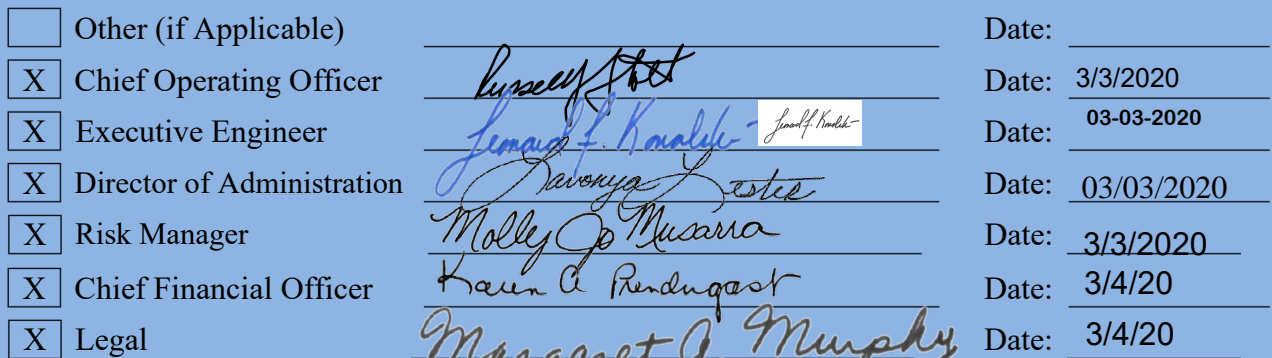 Other (if Applicable) Date:
X Chief Operating Officer Russell Stolt Date: 3/3/2020
X Executive Engineer Leonard F. Kowalski Date: 03-03-2020
X Director of Administration Lavonya Lester Date: 03/03/2020
X Risk Manager Molly Jo Musarra Date: 3/3/2020
X Chief Financial Officer Karen A Prendergast Date: 3/4/20
X Legal Margaret A Murphy Date: 3/4/20